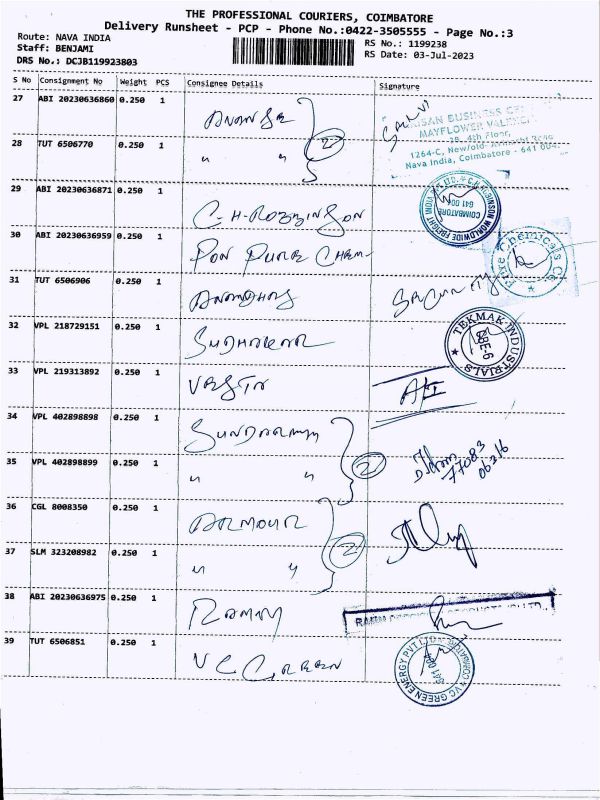 THE PROFESSIONAL COURIERS, COIMBATORE
Delivery Runsheet - PCP - Phone No.:0422-3505555 - Page No.:3
Route: NAVA INDIA
RS No.: 1199238
Staff: BENJAMI
RS Date: 03-Jul-2023
DRS No.: DCJB119923803
S No Consignment No Weight PCS Consignee Details Signature
27 ABI 20230636860 0.250 1
BUSINESS
MAYFLOWER
4th Floor,
28 TUT 6506770 0.250 1 " " 2
Nava India, Coimbatore - 641 004
29 ABI 20230636871 0.250 1 C-H-ROBBINSON
C.H. ROBINSON WORLDWIDE FREIGHT INDIA PVT. LTD. COIMBATORE 641 004
30 ABI 20230636959 0.250 1 PON PURE CHEM-
Pure Chemicals Co
31 TUT 6506906 0.250 1 SECURITY
32 VPL 218729151 0.250 1 SUDHAKAR
TEKMAK INDUSTRIALS CBE-6
33 VPL 219313892 0.250 1
34 VPL 402898898 0.250 1 SUNDARAM
77083
06316
35 VPL 402898899 0.250 1 " " 2
36 CGL 8008350 0.250 1 ARMOUR
37 SLM 323208982 0.250 1 " " 2
38 ABI 20230636975 0.250 1
39 TUT 6506851 0.250 1 VC GREEN
VC GREEN ENERGY PVT LTD COIMBATORE 641 004